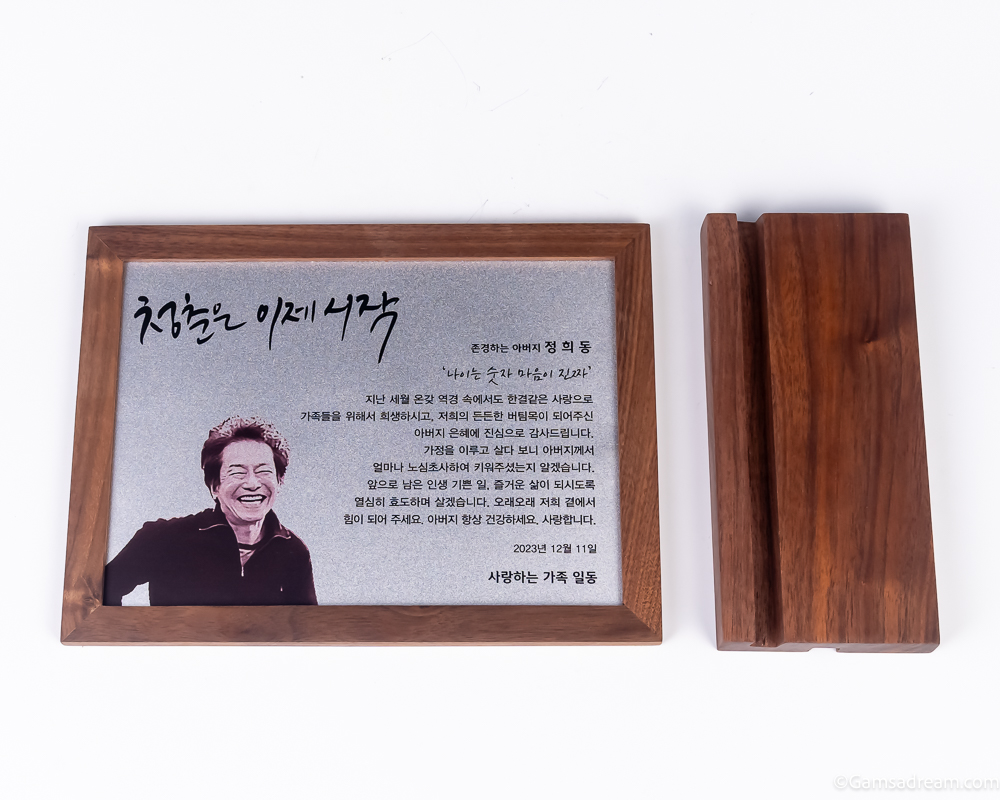 청춘은 이제 시작
존경하는 아버지 정 희 동
‘나이는 숫자 마음이 진짜’
지난 세월 온갖 역경 속에서도 한결같은 사랑으로
가족들을 위해서 희생하시고, 저희의 든든한 버팀목이 되어주신
아버지 은혜에 진심으로 감사드립니다.
가정을 이루고 살다 보니 아버지께서
얼마나 노심초사하여 키워주셨는지 알겠습니다.
앞으로 남은 인생 기쁜 일, 즐거운 삶이 되시도록
열심히 효도하며 살겠습니다. 오래오래 저희 곁에서
힘이 되어 주세요. 아버지 항상 건강하세요. 사랑합니다.
2023년 12월 11일
사랑하는 가족 일동
©Gamsadream.com